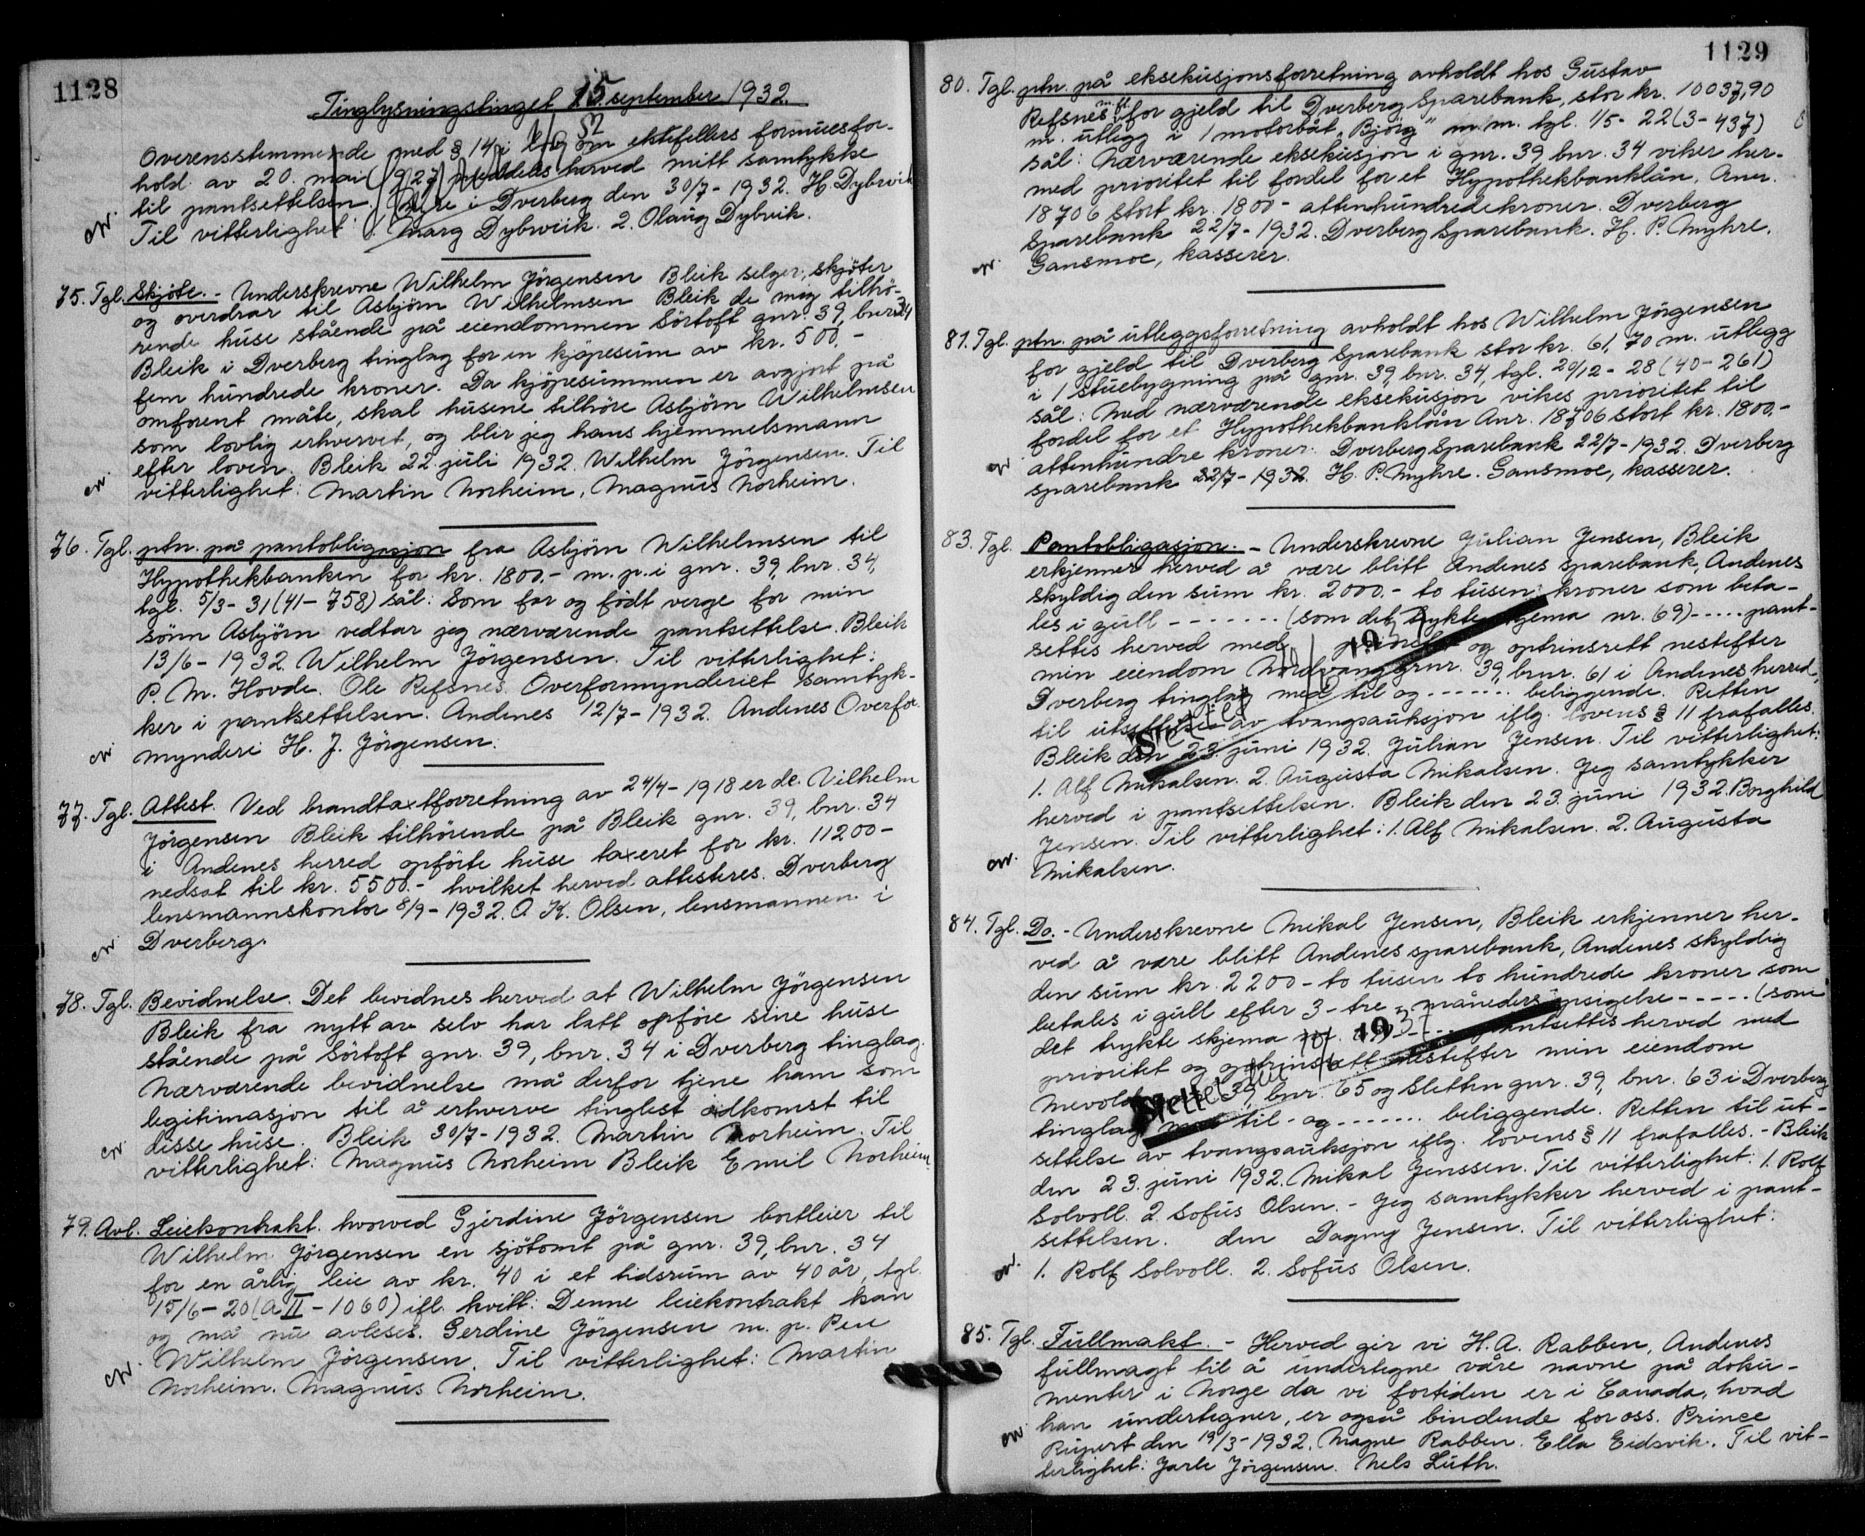 1128
Tinglysningstinget 15 september 1932.
Overensstemmende med § 14 i lov om ektefellers formuesfor-
hold av 20. mai 1927 meddeles herved mitt samtykke
til pantsettelsen. Åse i Dverberg den 30/7-1932. H Dybwik
Til vitterlighet: 1. Marg Dybwik. 2. Olaug Dybvik.
75. Tgl. Skjöte. - Underskrevne Wilhelm Jörgensen Bleik selger, skjöter
og overdrar til Asbjörn Wilhelmsen Bleik de mig tilhö-
rende huse stående på eiendommen Sörtoft gnr. 39, bnr. 34
Bleik i Dverberg tinglag for en kjöpesum av kr. 500,-
fem hundrede kroner. Da kjöpesummen er avgjort på
omforent måte, skal husene tilhöre Asbjörn Wilhelmsen
som lovlig erhvervet, og blir jeg hans hjemmelsmann
efter loven. Bleik 22 juli 1932. Wilhelm Jörgensen. Til
vitterlighet: Martin Norheim, Magnus Norheim.
76. Tgl. ptn. på pantobligasjon fra Asbjörn Wilhelmsen til
Hypothekbanken for kr. 1800.- m. p. i gnr. 39, bnr. 34,
tgl. 5/3-31 (41-758) sål: Som far og födt verge for min
sönn Asbjörn vedtar jeg nærværende pantsettelse. Bleik
13/6-1932. Wilhelm Jörgensen. Til vitterlighet:
P. M. Hovde. Ole Refsnes. Overformynderiet samtyk-
ker i pantsettelsen. Andenes 12/7-1932. Andenes Overfor-
mynderi H. J. Jörgensen.
77. Tgl. Attest. Ved brandtaxtforretning av 24/4-1918 er de Vilhelm
Jörgensen Bleik tilhörende på Bleik gnr. 39, bnr. 34
i Andenes herred opförte huse taxeret for kr. 11200-
nedsat til kr. 5500.- hvilket herved attesteres. Dverberg
lensmannskontor 8/9-1932. O K. Olsen, lensmannen i
Dverberg.
78. Tgl. Bevidnelse. Det bevidnes herved at Wilhelm Jörgensen
Bleik fra nytt av selv har latt opföre sine huse
stående på Sörtoft gnr. 39, bnr. 34 i Dverberg tinglag.
Nærværende bevidnelse må derfor tjene ham som
legitimasjon til å erhverve tinglest adkomst til
disse huse. Bleik 30/7-1932. Martin Norheim. Til
vitterlighet: Magnus Norheim Bleik Emil Norheim
79. Avl. Leiekontrakt. hvorved Gjerdine Jörgensen bortleier til
Wilhelm Jörgensen en sjötomt på gnr. 39, bnr. 34
for en årlig leie av kr. 40 i et tidsrum av 40 år, tgl.
15/6-20 (A II-1060) ifl. kvitt: Denne leiekontrakt kan
og må nu avleses. Gerdine Jörgensen m. p. Pen
Wilhelm Jörgensen. Til vitterlighet: Martin
Norheim. Magnus Norheim.
1129
80. Tgl. ptn. på eksekusjonsforretning avholdt hos Gustav
Refsnes m. fl. for gjeld til Dverberg Sparebank, stor kr. 10037,90
m. utlegg i 1 motorbåt "Björg" m. m. tgl. 1/5-22 (3-437)
sål: Nærværende eksekusjon i gnr. 39, bnr. 34 viker her-
med prioritet til fordel for et Hypothekbanklån, Anr.
18706 stort kr. 1800- attenhundredekroner. Dverberg
Sparebank 22/7-1932. Dverberg Sparebank. H. P. Myhre.
Gansmoe, kasserer.
81. Tgl. ptn. på utleggsforretning avholdt hos Wilhelm Jörgensen
for gjeld til Dverberg Sparebank stor kr. 61,70 m. utlegg
i 1 stuebygning på gnr. 39, bnr. 34, tgl. 20/12-28 (40-261)
sål: Med nærværende eksekusjon vikes prioritet til
fordel for et Hypothekbanklån Anr. 18706 stort kr. 1800.-
attenhundre kroner. Dverberg Sparebank 22/7-1932. Dverberg
sparebank 22/7-1932. H. P. Myhre. Gansmoe, kasserer.
83. Tgl. Pantobligasjon. - Underskrevne Julian Jensen, Bleik
erkjenner herved å være blitt Andenes sparebank, Andenes
skyldig den sum kr. 2000.- to tusen kroner som beta-
les i gull - - - - - - - (som det trykte skjema nr. 69) - - - - - pant-
settes herved med prioritet og optrinsrett nestefter
min eiendom Nordvang gnr. 39, bnr. 61 i Andenes herred,
Dverberg tinglag med til og - - - - - - beliggende. Retten
til utsettelse av tvangsauksjon iflg. lovens § 11 frafalles.
Bleik den 23 juni 1932. Julian Jensen. Til vitterlighet:
1. Alf Mikalsen. 2. Augusta Mikalsen. Jeg samtykker
herved i pantsettelsen. Bleik den 23. juni 1932. Borghild
Jensen. Til vitterlighet: 1. Alf Mikalsen. 2. Augusta
Mikalsen.
84. Tgl. Do. - Underskrevne Mikal Jensen, Bleik erkjenner her-
ved å være blitt Andenes sparebank, Andenes skyldig
den sum kr. 2200- to tusen to hundrede kroner som
betales i gull efter 3-tre- måneders opsigelse - - - - - (som
det trykte skjema nr. 69) - - - - pantsettes herved med
prioritet og optrinsrett nestefter min eiendom
gnr. 39, bnr. 65 og Sletten gnr. 39, bnr. 63 i Dverberg
tinglag med til- og - - - - - - beliggende. Retten til ut-
settelse av tvangsauksjon iflg. lovens § 11 frafalles. - Bleik
den 23. juni 1932. Mikal Jenssen. Til vitterlighet: 1. Rolf
Solvoll. 2 Sofus Olsen. - Jeg samtykker herved i pant-
settelsen. den Dagny Jensen. Til vitterlighet:
1. Rolf Solvoll. 2. Sofus Olsen.
85. Tgl. Fullmakt. - Herved gir vi H. A. Rabben, Andenes
fullmagt til å undertegne våre navne på doku-
menter i Norge da vi fortiden er i Canada, hvad
han undertegner, er også bindende for oss. Prince
Rupert den 19/3-1932. Magne Rabben. Ella Eidsvik. Til vit-
terlighet: Jarle Jörgensen. Nels Luth.